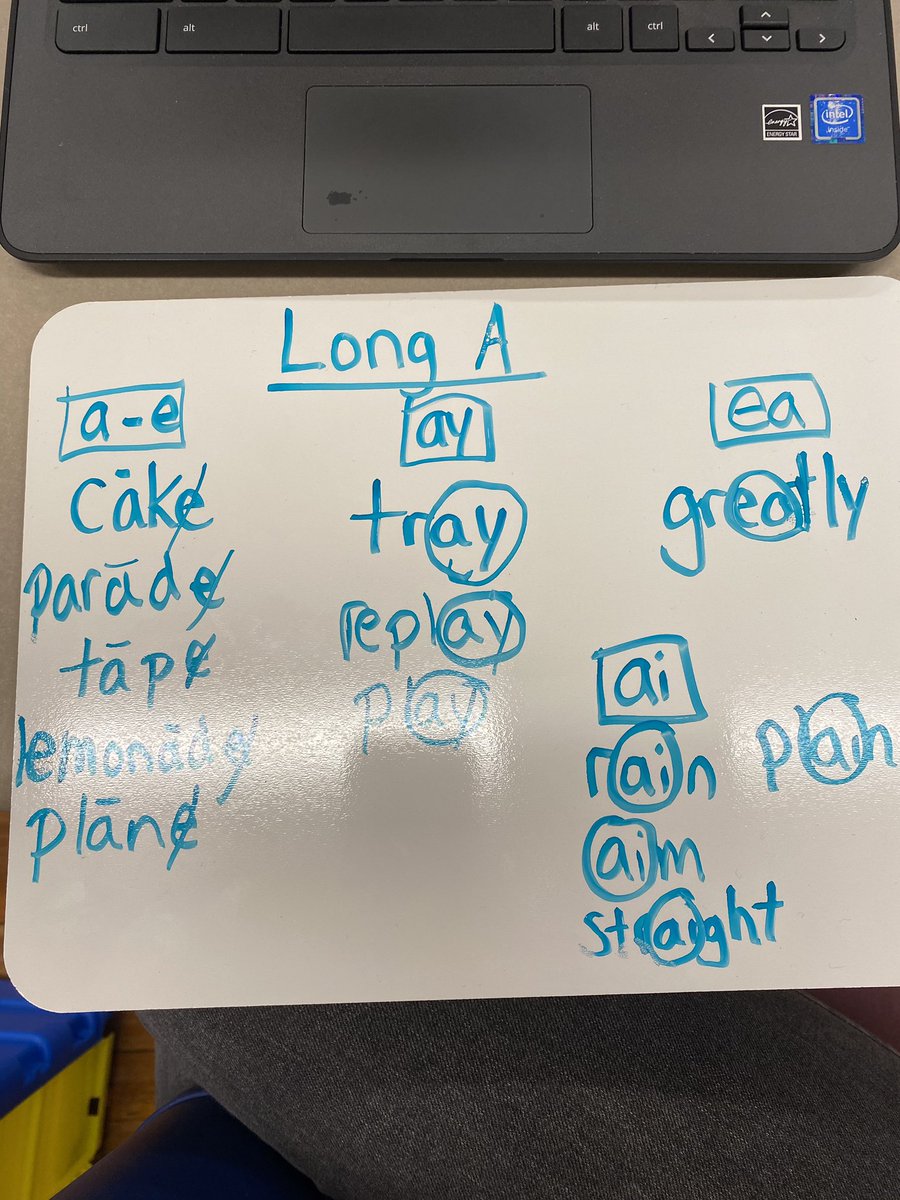 ctrl alt alt ctrl
ENERGY STAR intel inside
Long A
a-e
cāke
parāde
tāpe
lemonāde
plāne
ay
tray
replay
play
ea
greatly
ai
rain plain
aim
straight